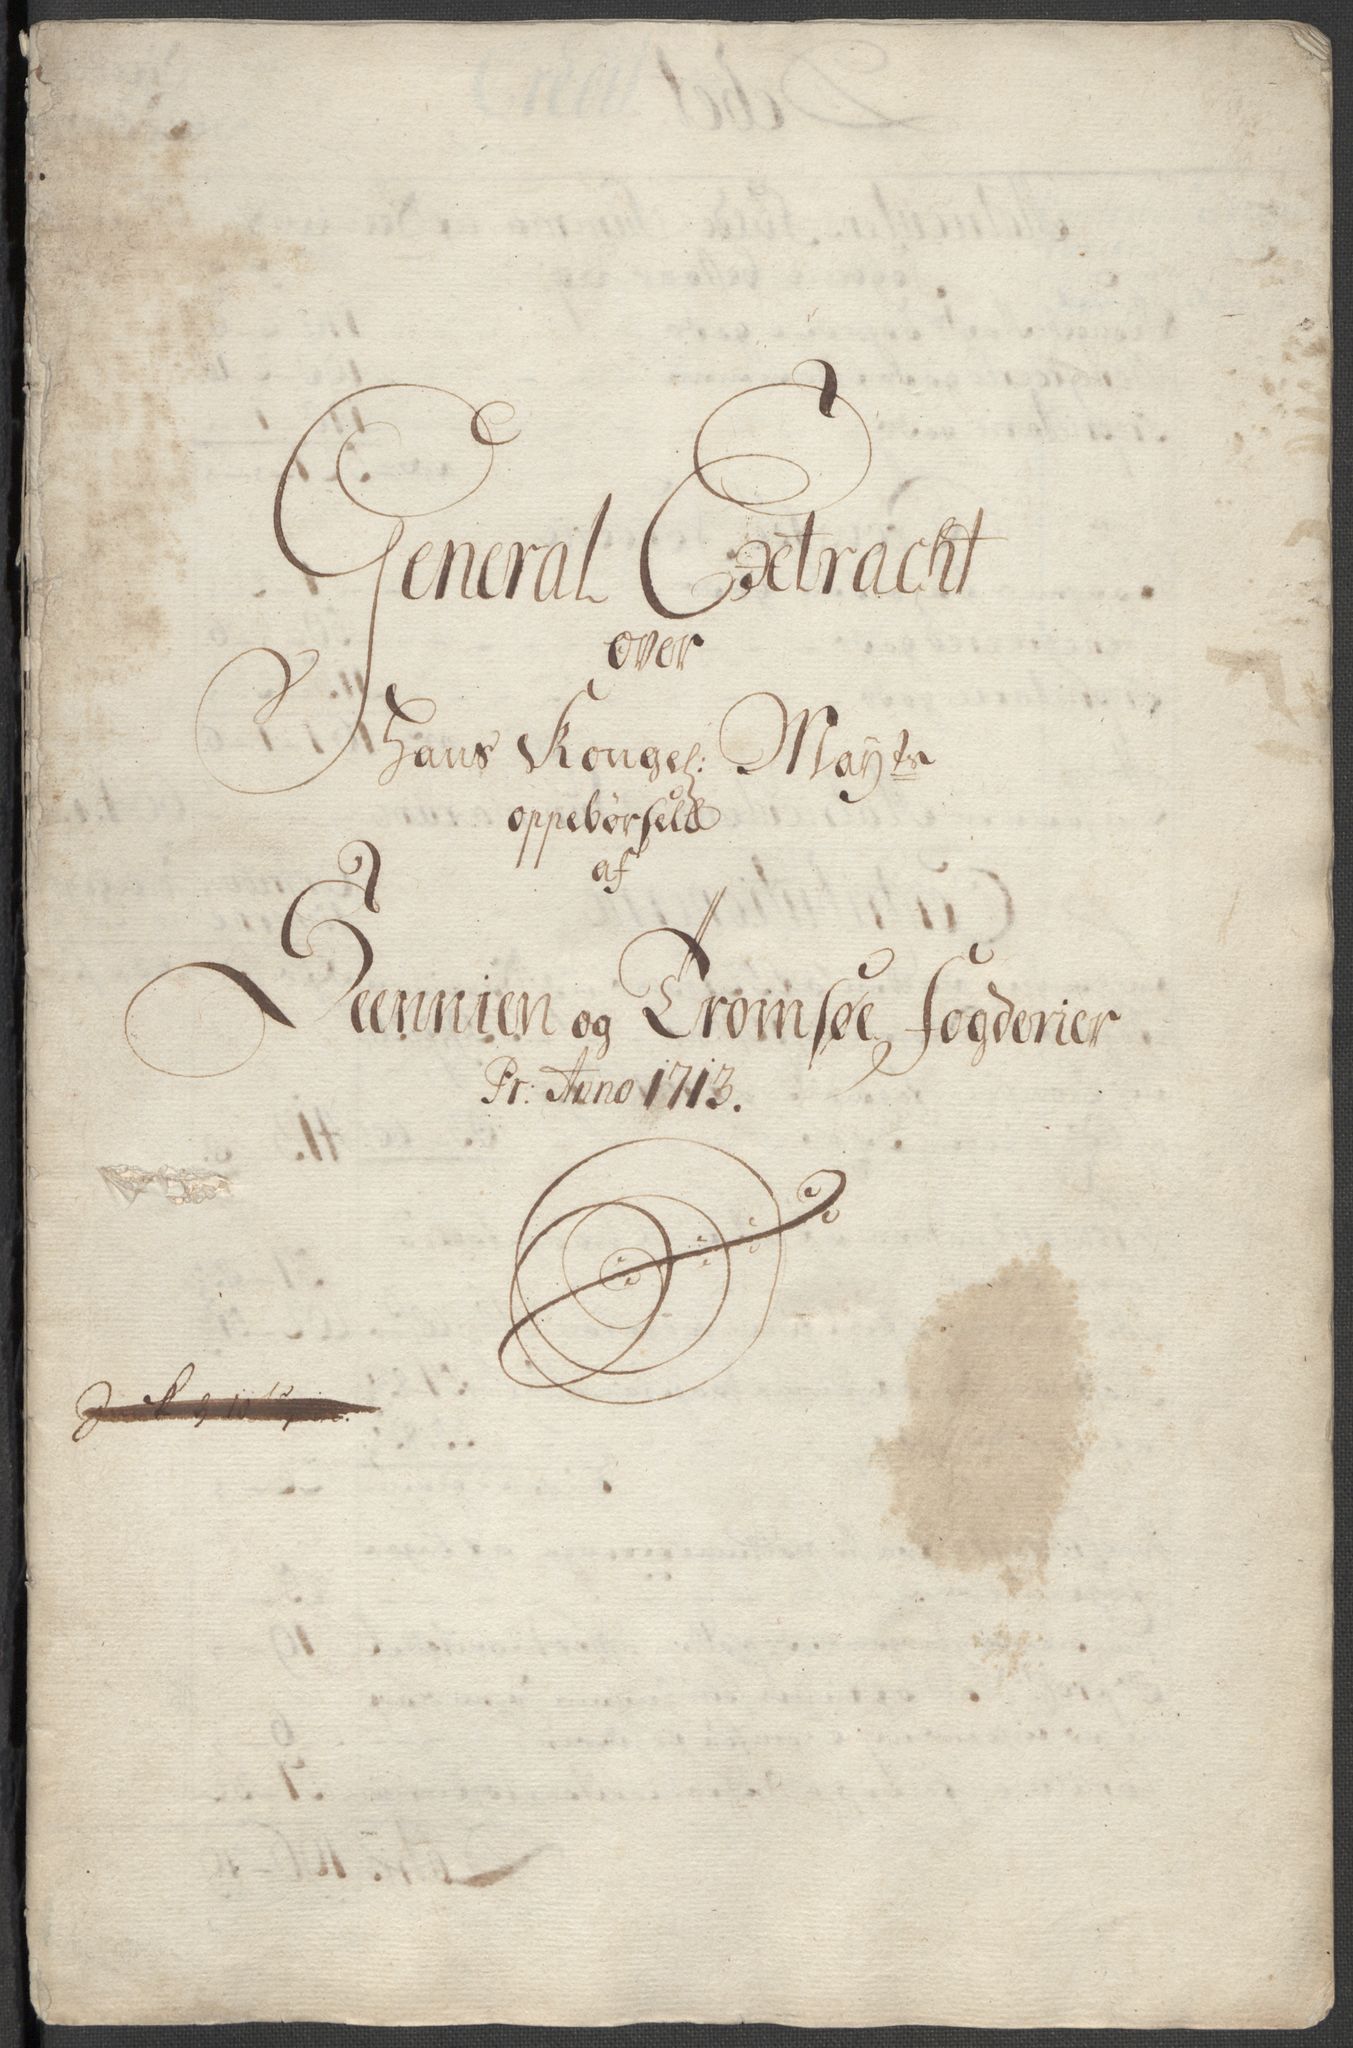 General Extracht
over
Hans Kongel: Mayts
oppebørsell
af
Seennien og Tromsøe fogderier
Pr: Anno 1713.